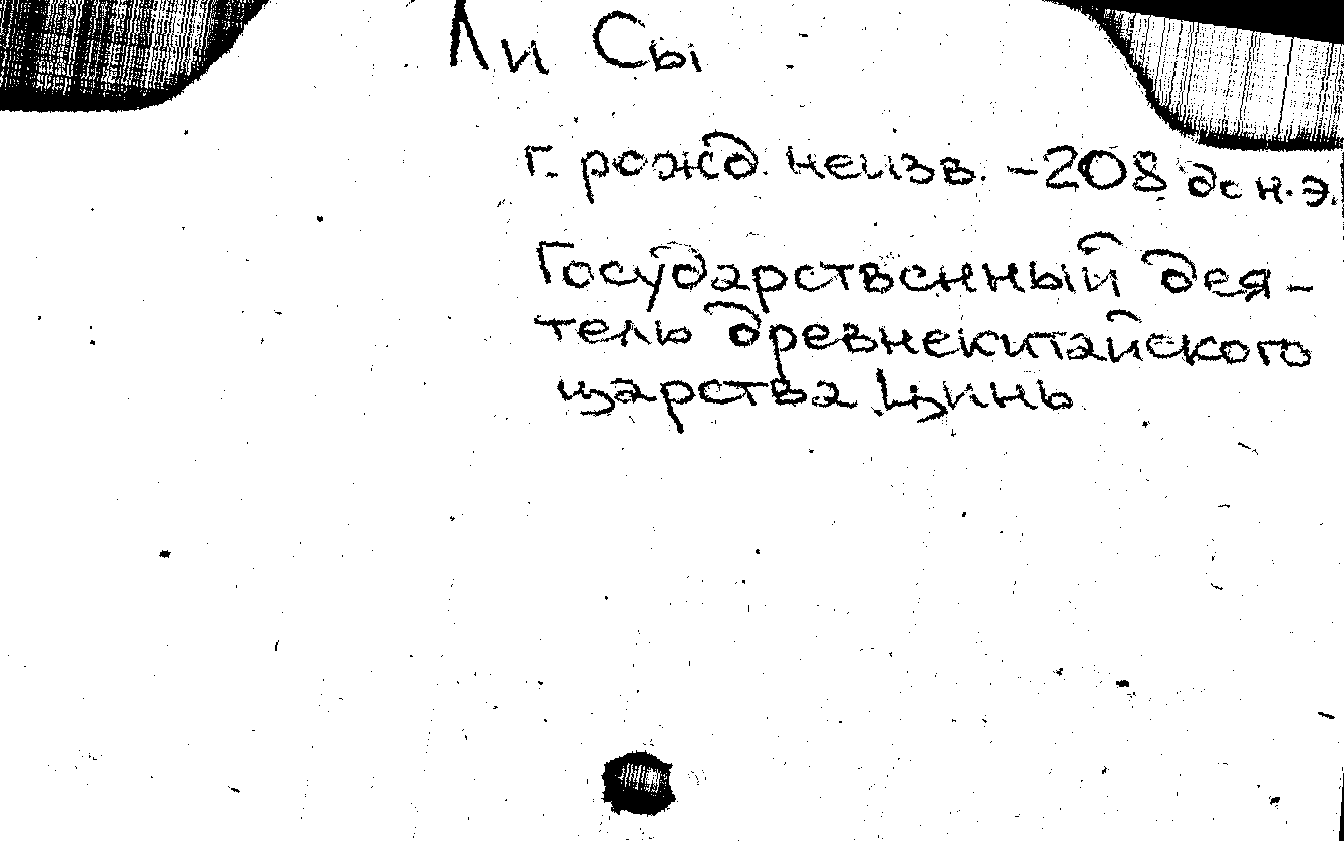 Ли Сы
г. рожд. неизв. -208 до н.э.
Государственный дея-
тель древнекитайского
царства Цинь